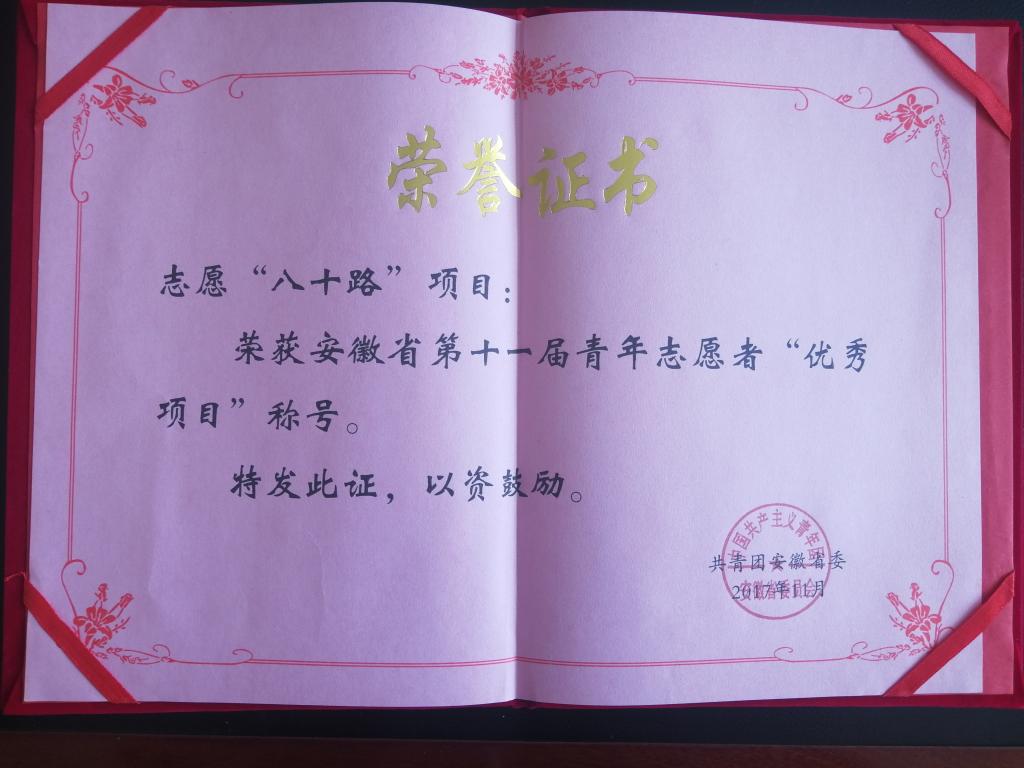 荣誉证书
志愿“八十路”项目：
荣获安徽省第十一届青年志愿者“优秀
项目”称号。
特发此证，以资鼓励。
中国共产主义青年团
共青团安徽省委
安徽省委员会
2017年11月